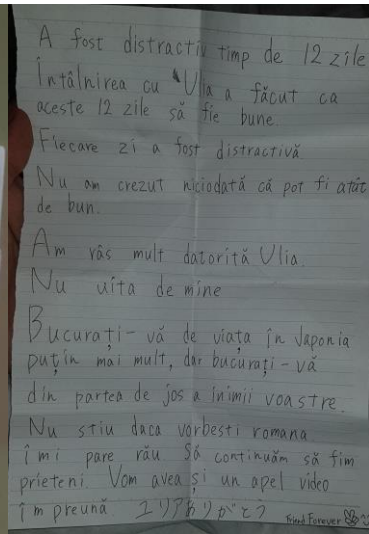 A fost distractiv timp de 12 zile
Întâlnirea cu Ulia a făcut ca
aceste 12 zile să fie bune.
Fiecare zi a fost distractivă
Nu am crezut niciodată că pot fi atât
de bun.
Am râs mult datorită Ulia.
Nu uita de mine
Bucurați-vă de viața în Japonia
puțin mai mult, dar bucurați-vă
din partea de jos a inimii voastre.
Nu stiu daca vorbesti romana
îmi pare rău Să continuăm să fim
prieteni. Vom avea și un apel video
împreună. ユリアありがとう
Friend Forever